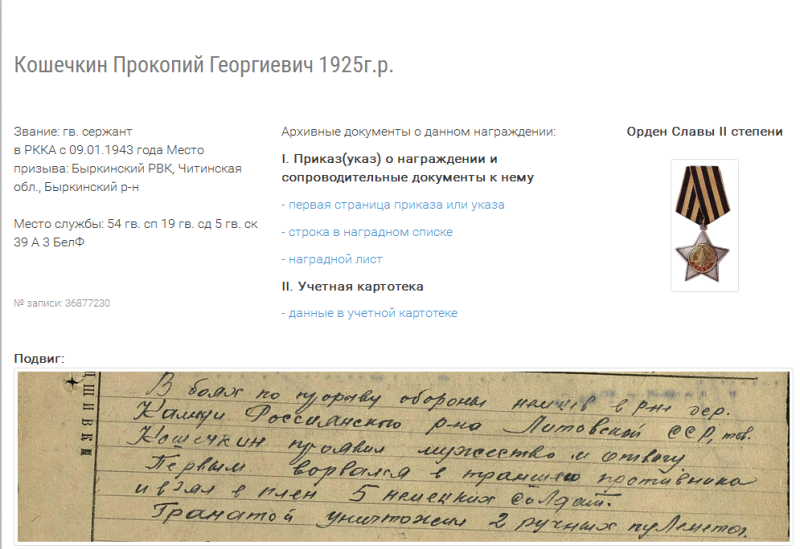 Кошечкин Прокопий Георгиевич 1925г.р.
Звание: гв. сержант
в РККА с 09.01.1943 года Место
призыва: Быркинский РВК, Читинская
обл., Быркинский р-н
Место службы: 54 гв. сп 19 гв. сд 5 гв. ск
39 А 3 БелФ
№ записи: 36877230
Архивные документы о данном награждении:
I. Приказ(указ) о награждении и
сопроводительные документы к нему
- первая страница приказа или указа
- строка в наградном списке
- наградной лист
II. Учетная картотека
- данные в учетной картотеке
Орден Славы II степени
Подвиг:
В боях по прорыву обороны немцев в р-не дер.
Россиянского р-на Литовской ССР, тов.
Кошечкин проявил мужество и отвагу
Первым ворвался в траншею противника
и взял в плен 5 немецких солдат.
Гранатой уничтожил 2 ручных пулемета.